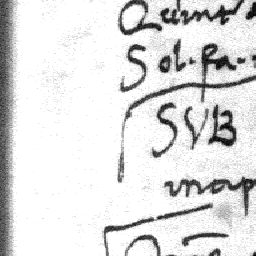 Quint
Sol. fa.
SVB
inap